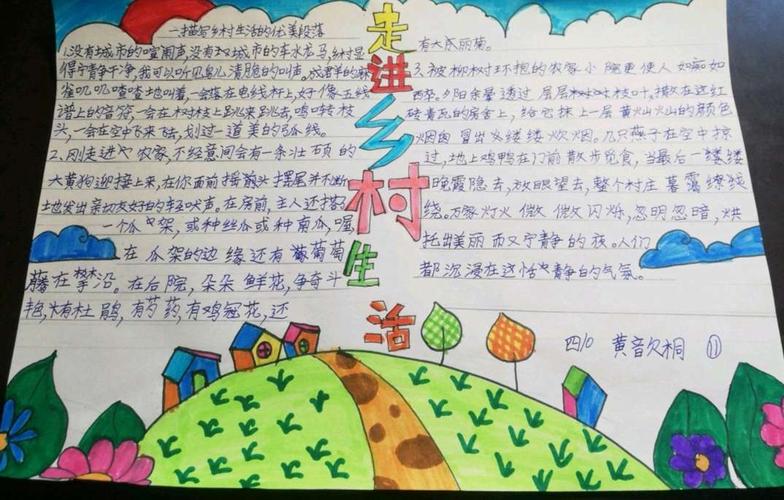 走进乡村生活
一描写乡村生活的优美段落
1.没有城市的喧闹声,没有城市的车水龙马,乡村显
得宁静干净,我可以听见鸟儿清脆的叫声,成群的麻
雀叽叽喳喳地叫着,一会落在电线杆上,好像五线
谱上的音符,一会在树枝上跳来跳去,鸣叫转枝
头,一会在空中飞来飞去,划过一道美的弧线。
2.刚走进农家,不经意间会有一条壮硕的
大黄狗迎接上来,在你面前摇头摆尾并不断
地发出亲切友好的轻吠声。在房前,主人还搭
一个瓜架,或种丝瓜或种南瓜,喔,
在瓜架的边缘还有葡萄
藤在攀沿。在后院,朵朵鲜花,争奇斗
艳,有杜鹃,有芍药,有鸡冠花,还
有大丽菊。
3.被柳树环抱的农家小院更使人如痴如
醉。夕阳余晕透过层层树枝叶,撒在这红
砖青瓦的房舍上,给它抹上一层黄灿灿的颜色
烟囱冒出缕缕炊烟。几只燕子在空中掠
过,地上鸡鸭在门前散步觅食,当最后一缕缕
晚霞隐去,放眼望去,整个村庄暮霭缭
绕。万家灯火微微闪烁,忽明忽暗,烘
托出美丽而又宁静的夜。人们
都沉浸在这恬静的气氛。
四10 黄音欠桐 ⑪